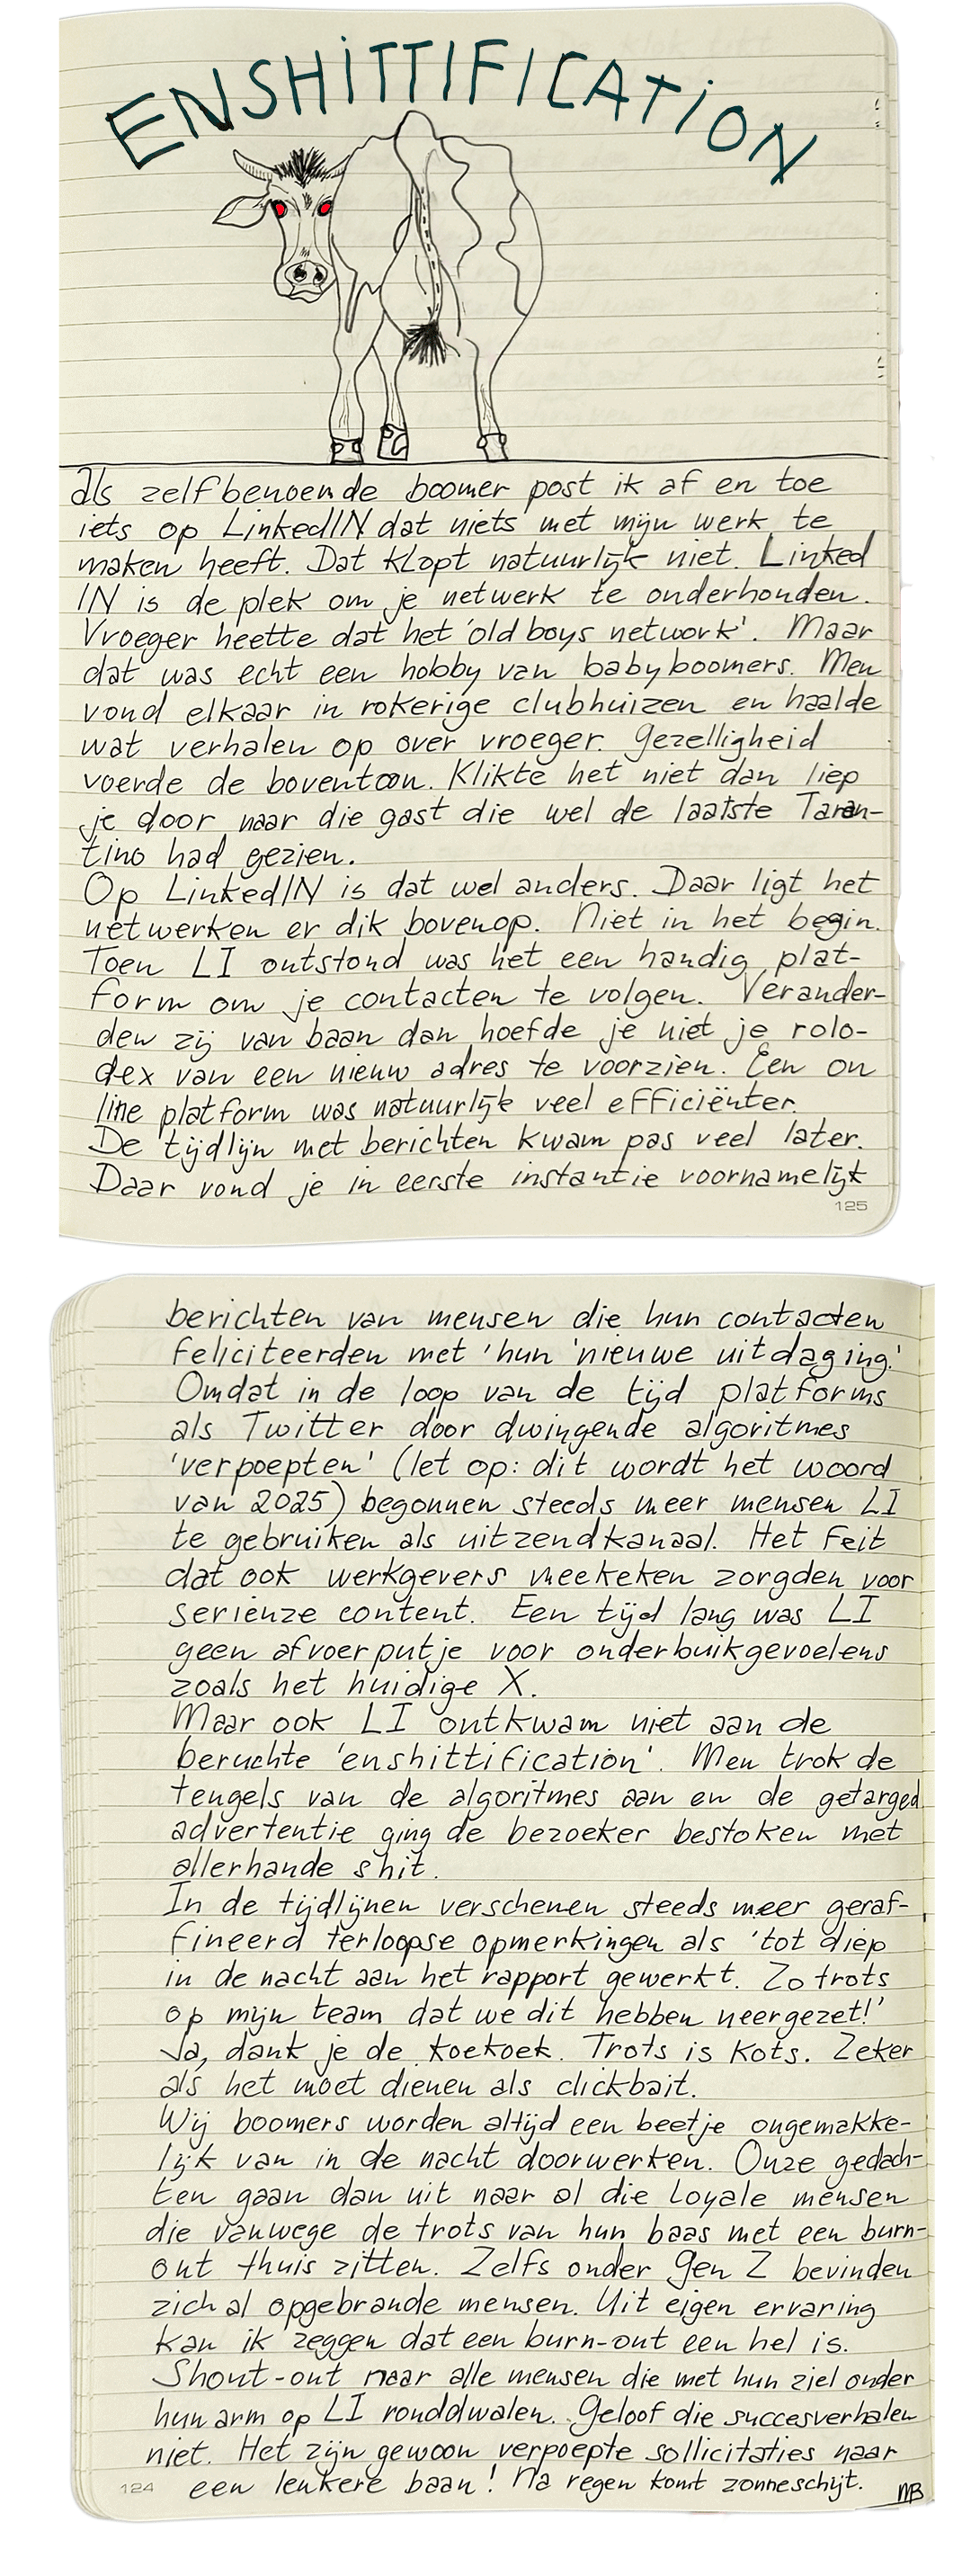 ENSHITTIFICATION
als zelfbenoemde boomer post ik af en toe
iets op LinkedIN dat niets met mijn werk te
maken heeft. Dat klopt natuurlijk niet. Linked
IN is de plek om je netwerk te onderhouden.
Vroeger heette dat het 'old boys network'. Maar
dat was echt een hobby van babyboomers. Men
vond elkaar in rokerige clubhuizen en haalde
wat verhalen op over vroeger. Gezelligheid
voerde de boventoon. Klikte het niet dan liep
je door naar die gast die wel de laatste Taran-
tino had gezien.
Op LinkedIN is dat wel anders. Daar ligt het
netwerken er dik bovenop. Niet in het begin.
Toen LI ontstond was het een handig plat-
form om je contacten te volgen. Verander-
den zij van baan dan hoefde je niet je rolo-
dex van een nieuw adres te voorzien. Een on
line platform was natuurlijk veel efficiënter.
De tijdlijn met berichten kwam pas veel later.
Daar vond je in eerste instantie voornamelijk
125
berichten van mensen die hun contacten
feliciteerden met 'hun 'nieuwe uitdaging.'
Omdat in de loop van de tijd platforms
als Twitter door dwingende algoritmes
'verpoepten' (let op: dit wordt het woord
van 2025) begonnen steeds meer mensen LI
te gebruiken als uitzendkanaal. Het feit
dat ook werkgevers meekeken zorgden voor
serieuze content. Een tijd lang was LI
geen afvoerputje voor onderbuikgevoelens
zoals het huidige X.
Maar ook LI ontkwam niet aan de
beruchte 'enshittification'. Men trok de
teugels van de algoritmes aan en de getarged
advertentie ging de bezoeker bestoken met
allerhande shit.
In de tijdlijnen verschenen steeds meer geraf-
fineerd terloopse opmerkingen als 'tot diep
in de nacht aan het rapport gewerkt. Zo trots
op mijn team dat we dit hebben neergezet!'
Ja, dank je de koekoek. Trots is kots. Zeker
als het moet dienen als clickbait.
Wij boomers worden altijd een beetje ongemakke-
lijk van in de nacht doorwerken. Onze gedach-
ten gaan dan uit naar al die loyale mensen
die vanwege de trots van hun baas met een burn-
out thuis zitten. Zelfs onder Gen Z bevinden
zich al opgebrande mensen. Uit eigen ervaring
kan ik zeggen dat een burn-out een hel is.
Shout-out naar alle mensen die met hun ziel onder
hun arm op LI ronddwalen. Geloof die succesverhalen
niet. Het zijn gewoon verpoepte sollicitaties naar
een leukere baan! Na regen komt zonneschijt.
124
MB